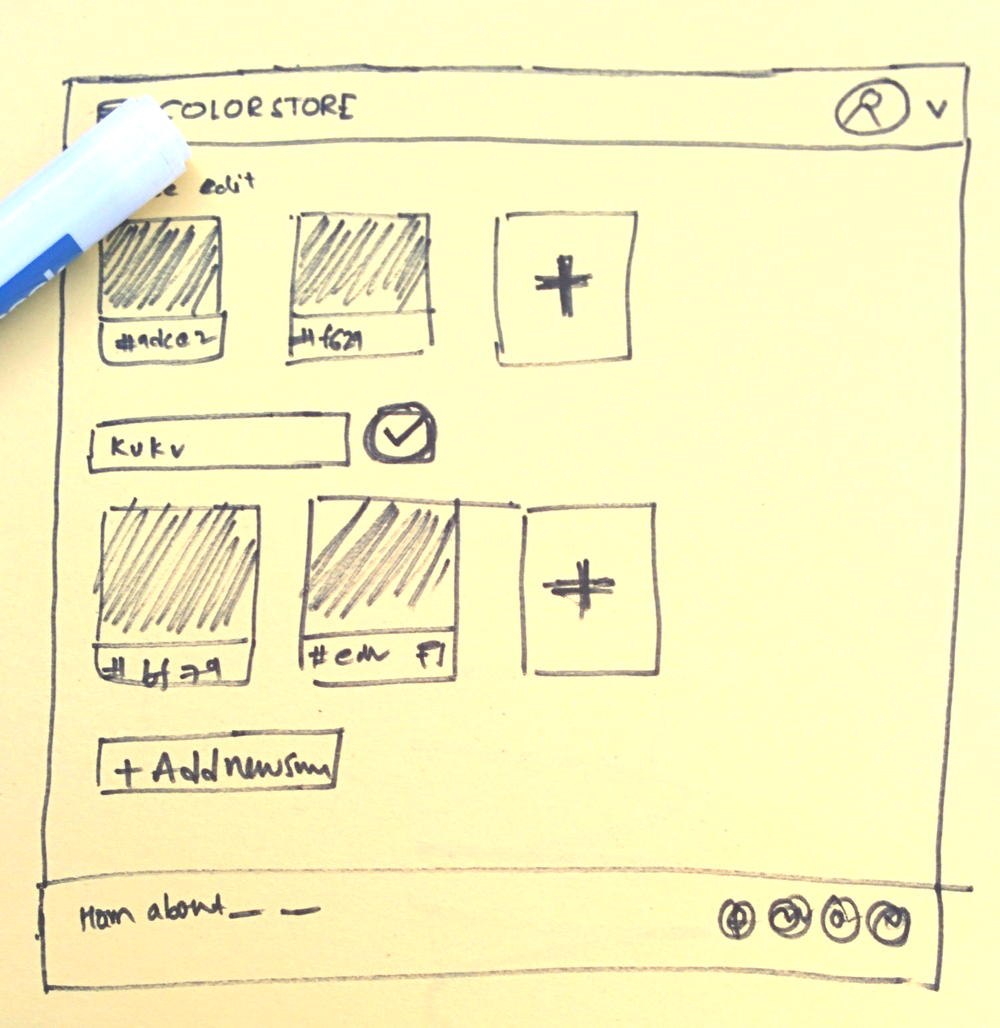 COLORSTORE
edit
#9dce2 #f629
kuku
#bf79 #edv F1
+ Add new
Hom about